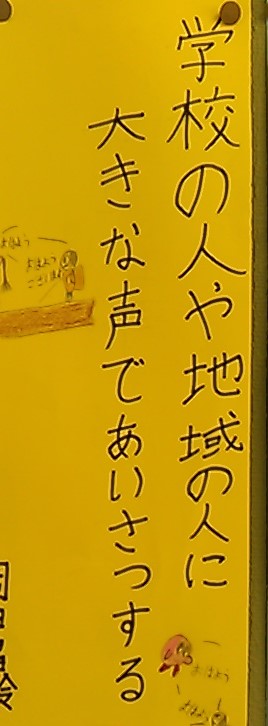 学校の人や地域の人に
大きな声であいさつする
おはよう
おはよう
ございます
おはよう